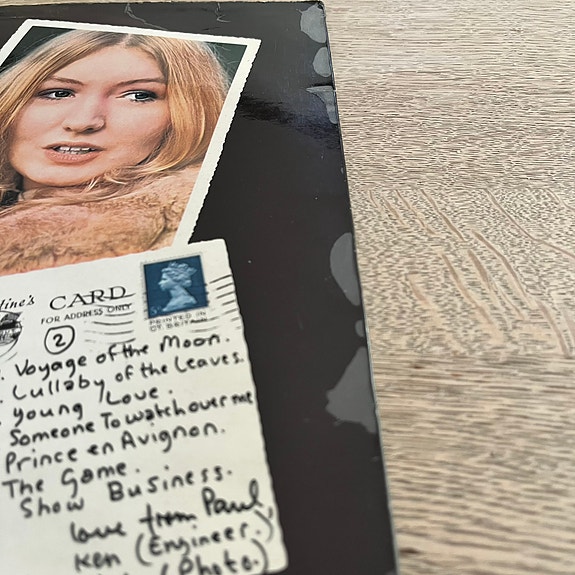 tine's CARD
FOR ADDRESS ONLY
PRINTED IN
GT. BRITAIN
2
Voyage of the Moon.
Lullaby of the Leaves.
Young Love.
Someone To watch over me
Prince en Avignon.
The Game.
Show Business.
love from Paul
Ken (Engineer.)
(Photo.)